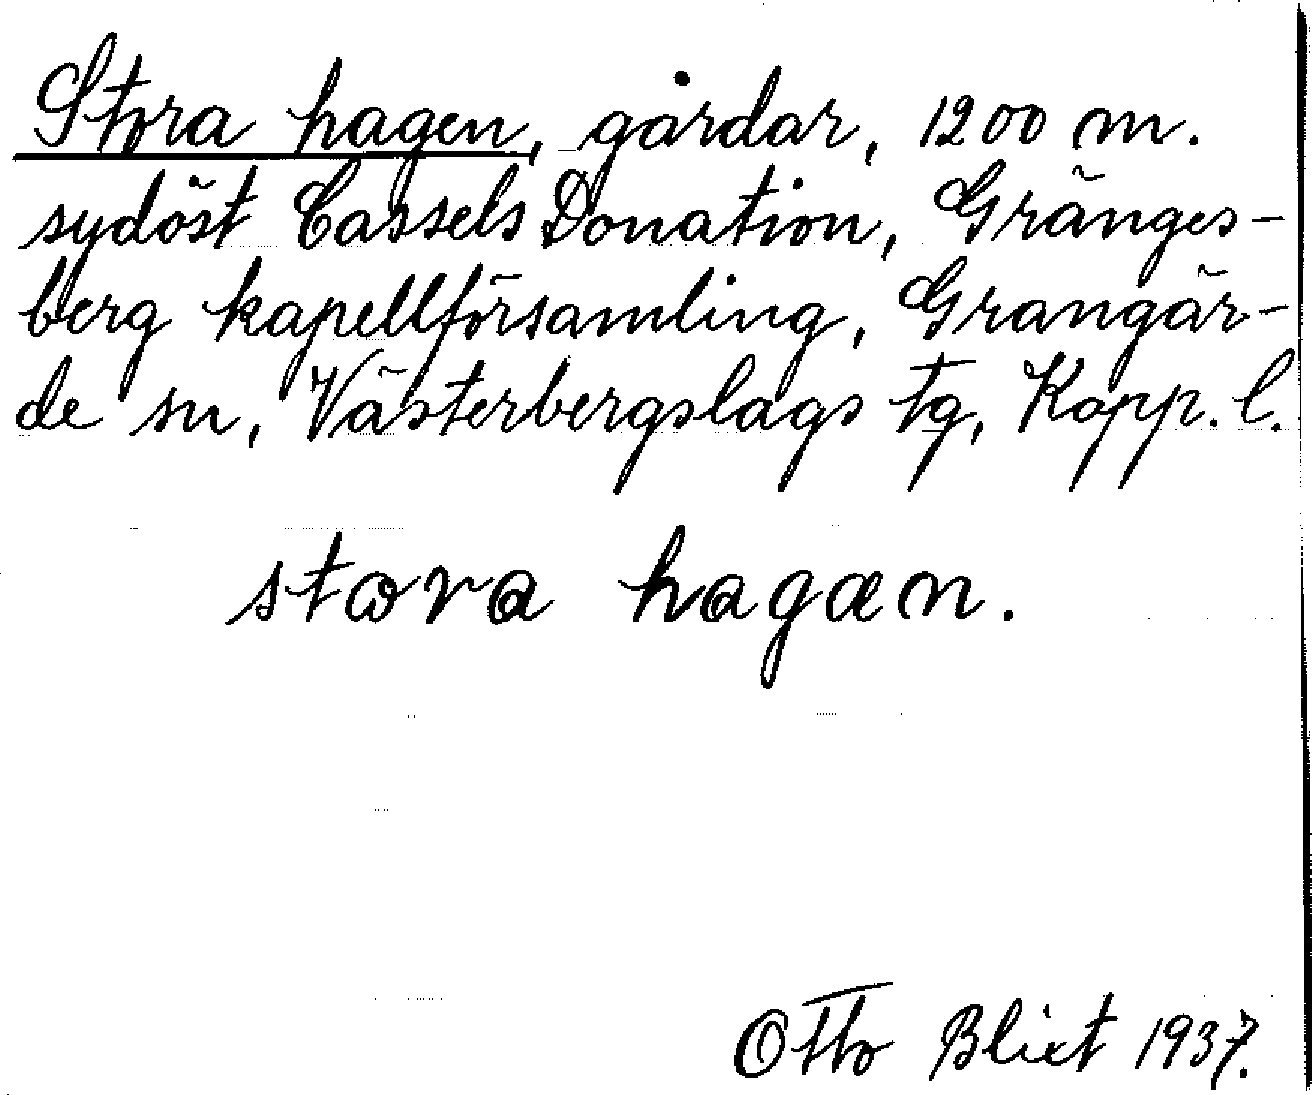 Stora hagen, gårdar, 1200 m.
sydöst Cassels Donation, Gränges-
berg kapellförsamling, Grangär-
de sn, Västerbergslags tg, Kopp. l.
stωra hagæn.
Otto Blixt 1937.